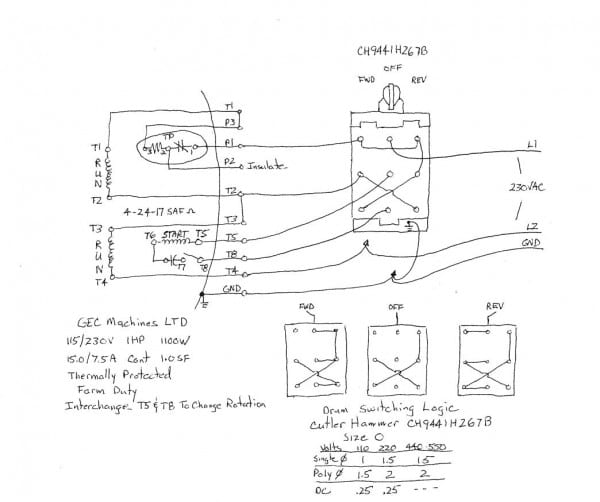 CH9441H267B
OFF
FWD REV
T1
P3
T1 TP P1 L1
3 2 1
R
U
N
P2 Insulate
T2 T2 230VAC
4-24-17 SAF
T3 T3
T6 START T5 T5 L2
R
U
N
T7 T8 T8 GND
T4 T4
GND
FWD OFF REV
GEC Machines LTD
115/230V 1HP 1100W
15.0/7.5A Cont 1.0SF
Thermally Protected
Farm Duty
Interchange T5 & T8 To Change Rotation
Drum Switching Logic
Cutler Hammer CH9441H267B
Size 0
Volts 110 220 440-550
Single Ø 1 1.5 1.5
Poly Ø 1.5 2 2
DC .25 .25 ---